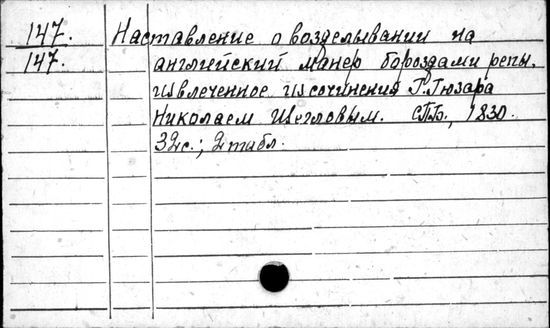 147. Наставление о возделывании на
147. английский манер бороздами репы,
извлеченное из сочинения Г. Гюзара
Николаем Щегловым. СПБ., 1830.
32с.; 2 табл.